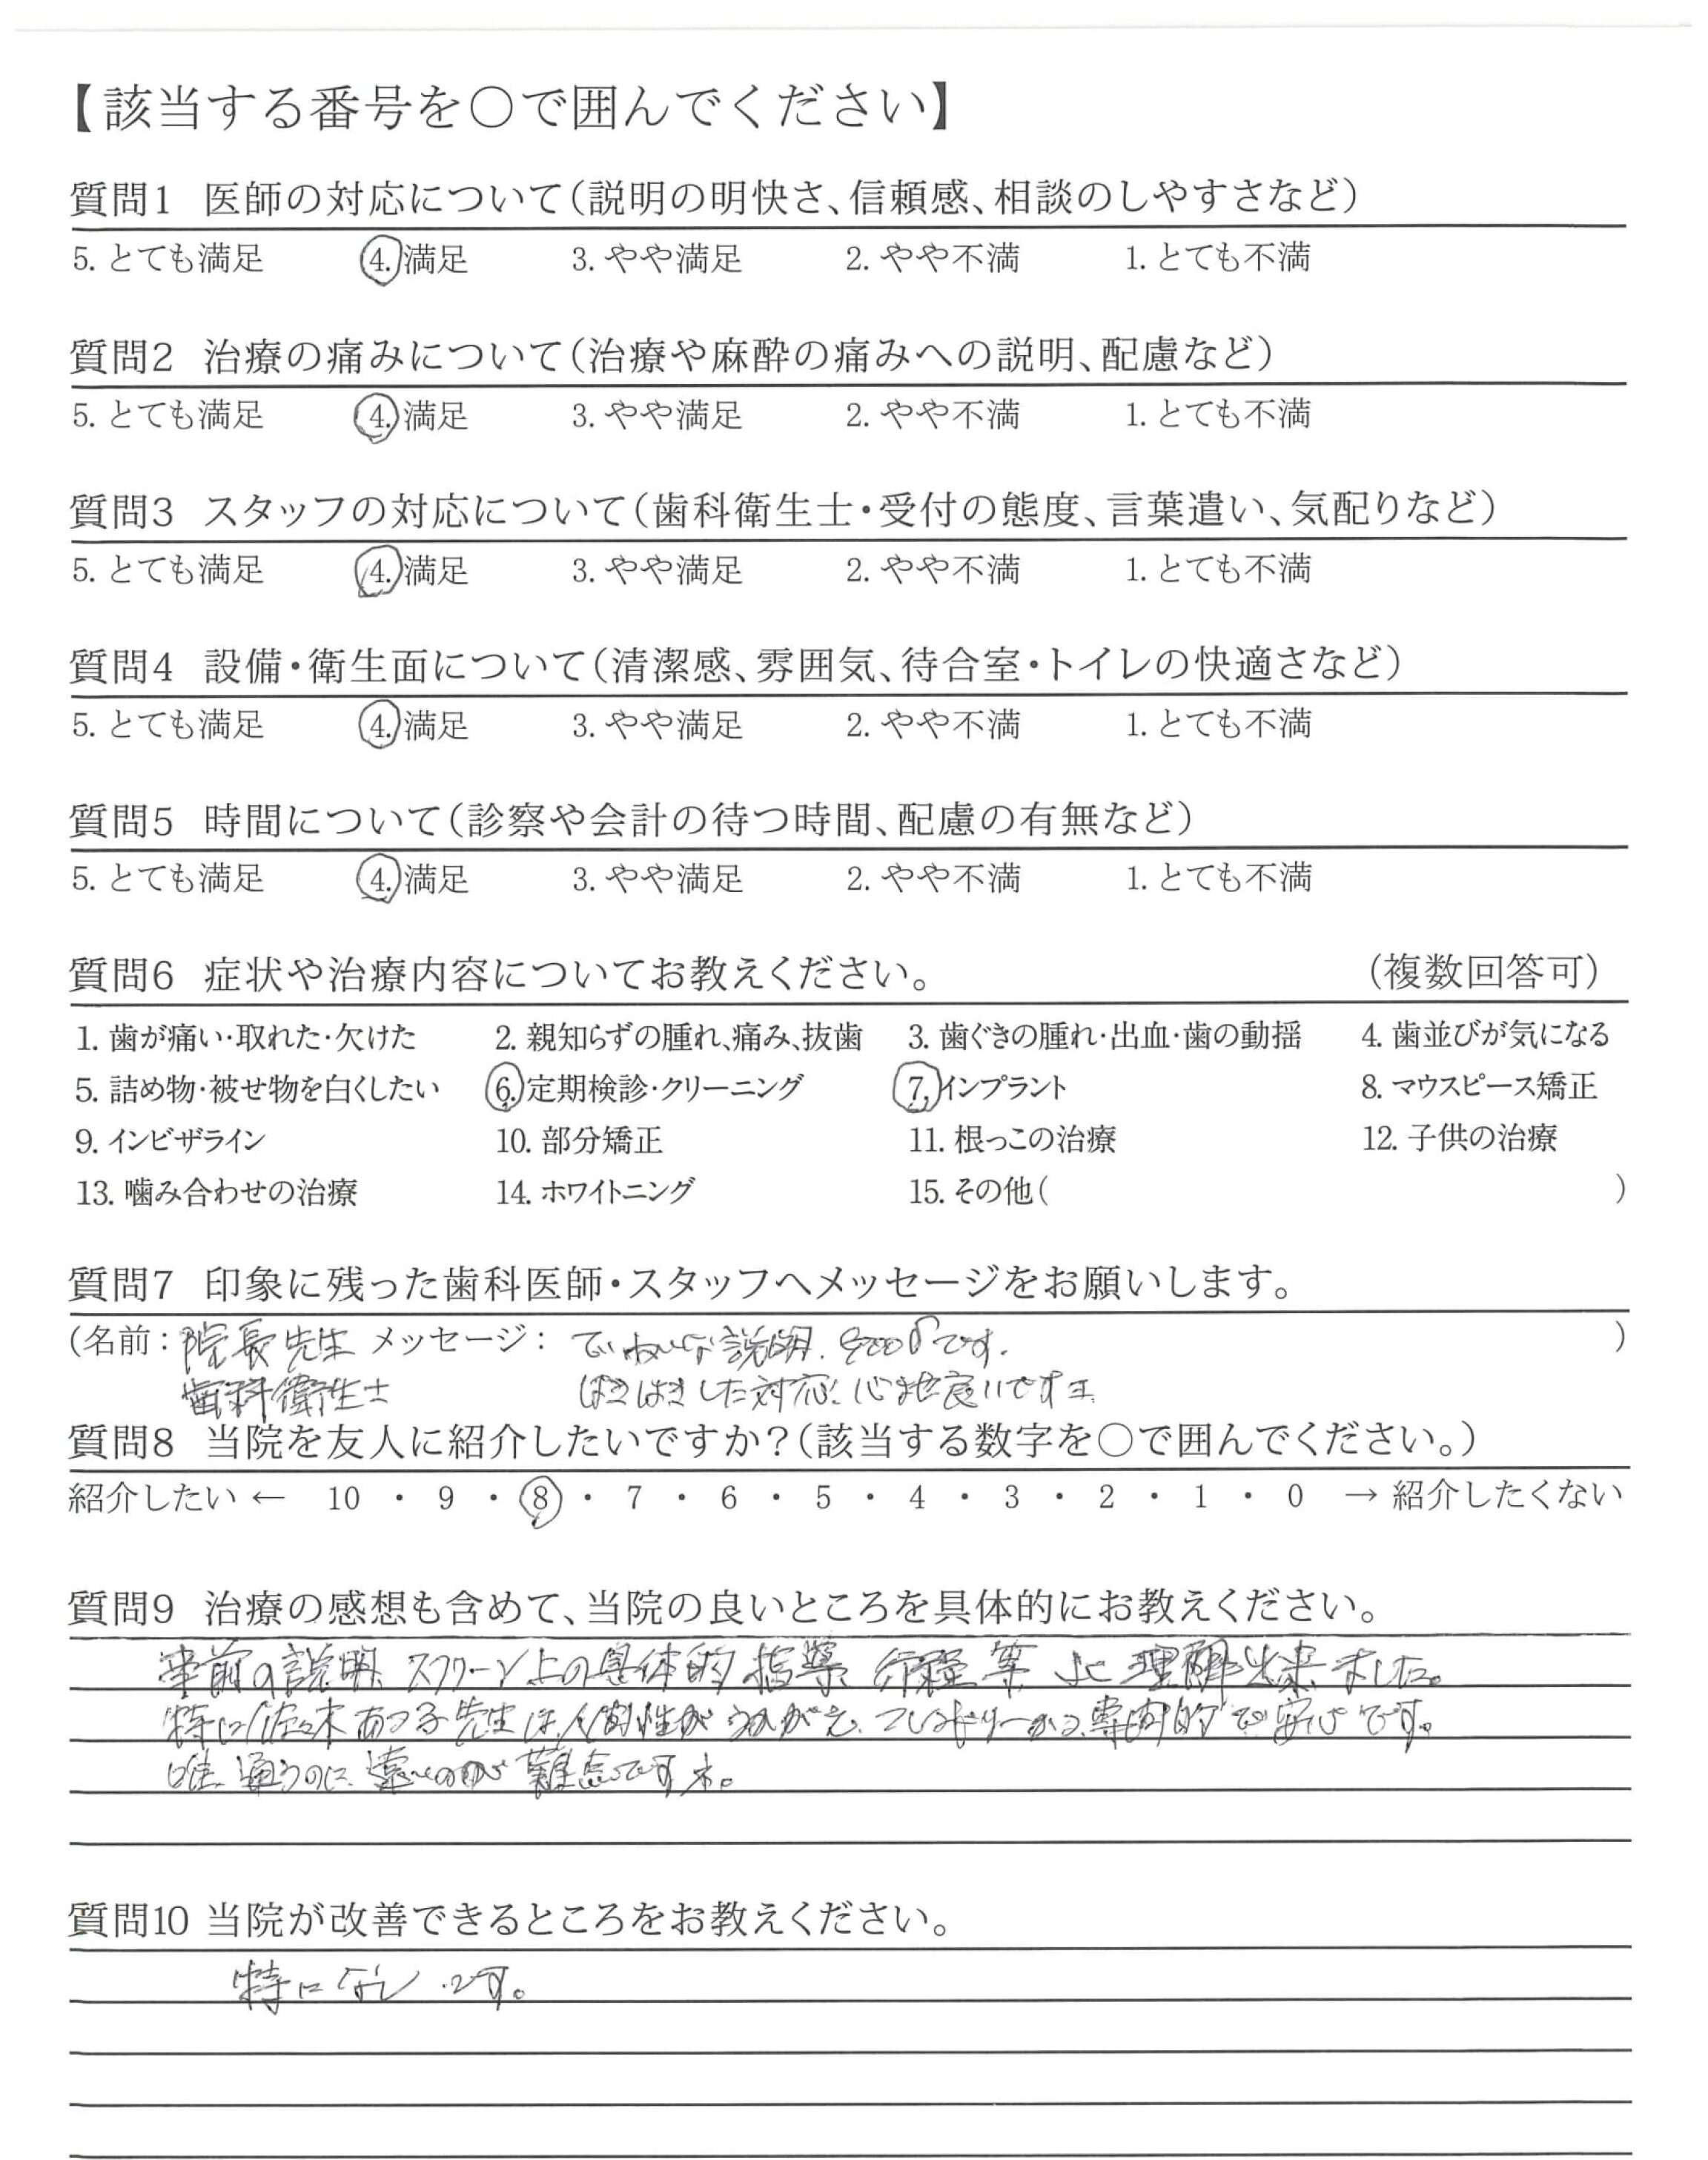 【該当する番号を○で囲んでください】
質問1 医師の対応について(説明の明快さ、信頼感、相談のしやすさなど)
5. とても満足 4. 満足 3. やや満足 2. やや不満 1. とても不満
質問2 治療の痛みについて(治療や麻酔の痛みへの説明、配慮など)
5. とても満足 4. 満足 3. やや満足 2. やや不満 1. とても不満
質問3 スタッフの対応について(歯科衛生士・受付の態度、言葉遣い、気配りなど)
5. とても満足 4. 満足 3. やや満足 2. やや不満 1. とても不満
質問4 設備・衛生面について(清潔感、雰囲気、待合室・トイレの快適さなど)
5. とても満足 4. 満足 3. やや満足 2. やや不満 1. とても不満
質問5 時間について(診察や会計の待つ時間、配慮の有無など)
5. とても満足 4. 満足 3. やや満足 2. やや不満 1. とても不満
質問6 症状や治療内容についてお教えください。 (複数回答可)
1. 歯が痛い・取れた・欠けた 2. 親知らずの腫れ、痛み、抜歯 3. 歯ぐきの腫れ・出血・歯の動揺 4. 歯並びが気になる
5. 詰め物・被せ物を白くしたい 6. 定期検診・クリーニング 7. インプラント 8. マウスピース矯正
9. インビザライン 10. 部分矯正 11. 根っこの治療 12. 子供の治療
13. 噛み合わせの治療 14. ホワイトニング 15. その他( )
質問7 印象に残った歯科医師・スタッフへメッセージをお願いします。
(名前：院長先生 メッセージ： ていねいな説明、です。 )
歯科衛生士 はきはきした対応、心地良いですヨ
質問8 当院を友人に紹介したいですか？(該当する数字を○で囲んでください。)
紹介したい ← 10 ・ 9 ・ 8 ・ 7 ・ 6 ・ 5 ・ 4 ・ 3 ・ 2 ・ 1 ・ 0 → 紹介したくない
質問9 治療の感想も含めて、当院の良いところを具体的にお教えください。
事前の説明、スクリーン上の具体的指導、行程等 よく理解出来ました。
特に佐々木あつ子先生は、人間性がうかがえ、専門的で安心です。
唯、通うのに、遠いのが難点ですネ。
質問10 当院が改善できるところをお教えください。
特になしです。